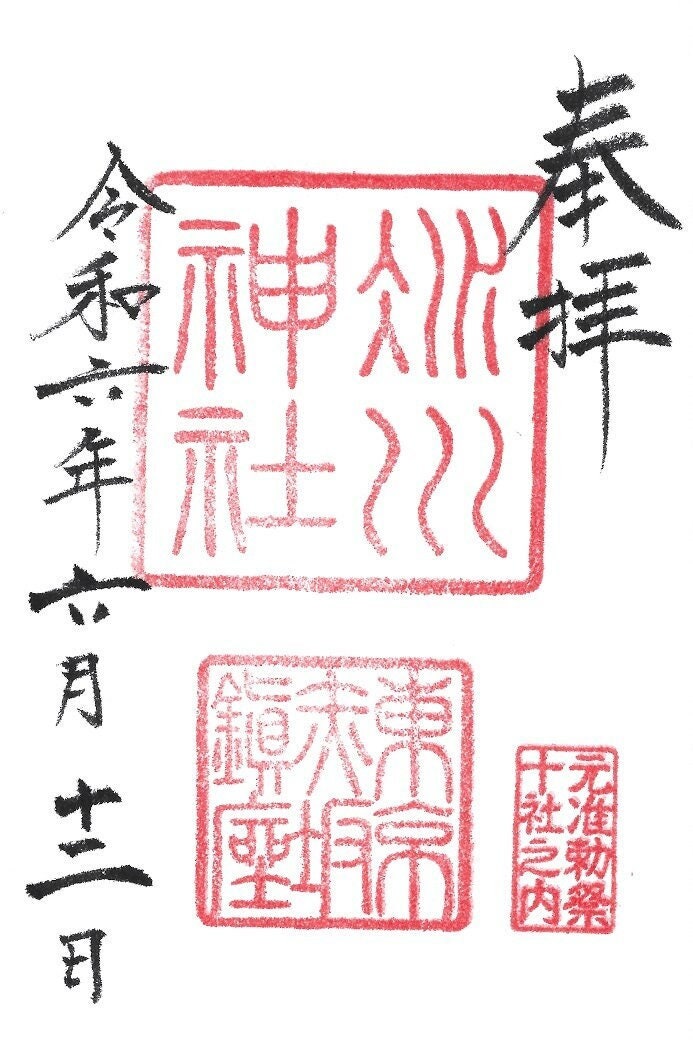 奉拝
氷川
神社
東京
赤坂
鎮座
元准勅祭
十社之内
令和六年六月十二日